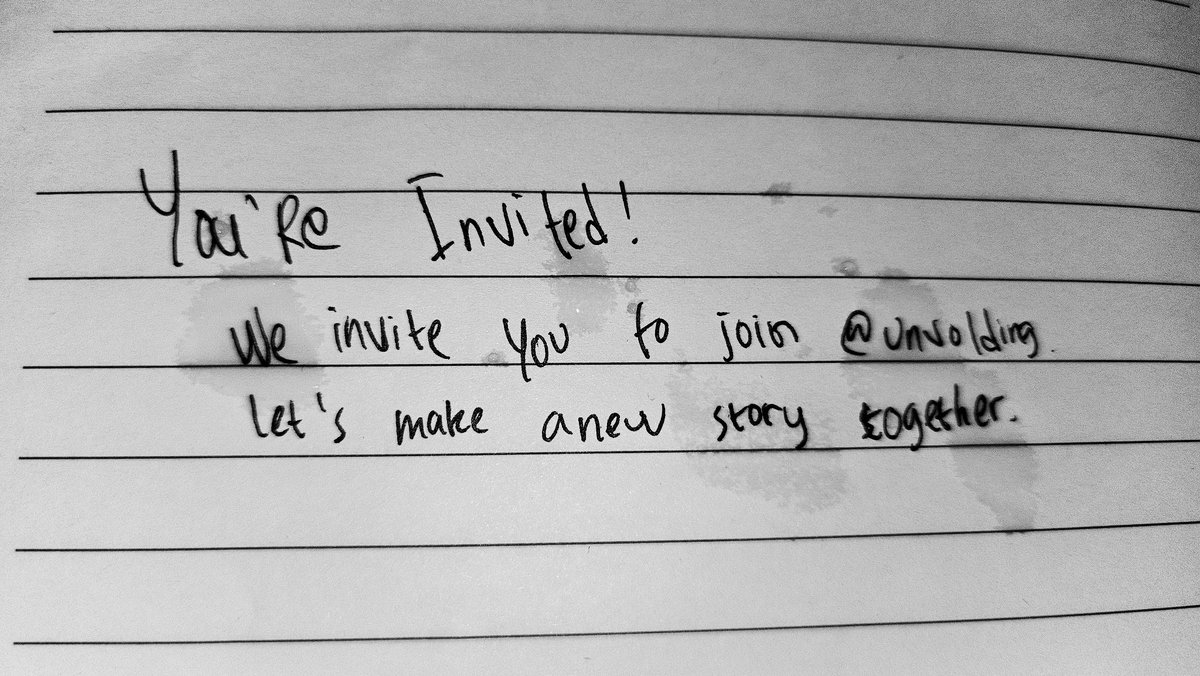 You're Invited!
We invite you to join @unvolding.
let's make anew story together.